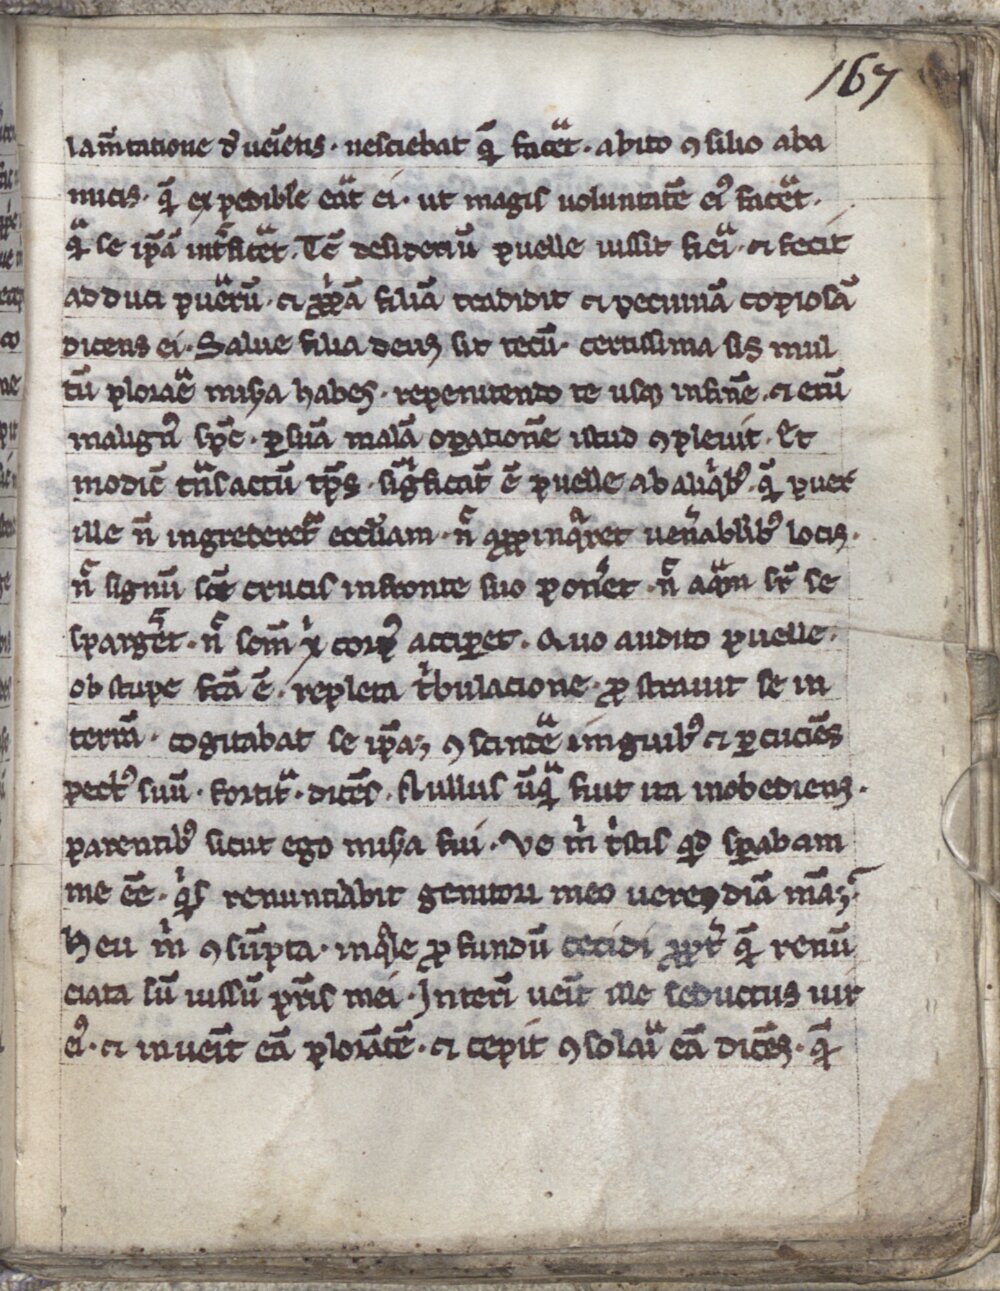 167
lam̄tatione d̓ veīens · nesciebat q̄ facet̄ · abito ꝯsilio aba
micis · q̄ expedible eāt ei · ut magis voluntatē ei᷒ facet̄ ·
q̄ se ip̄a int̄ficet̄ · Tē desideriū puelle iussit fiei̓ · et fecit
adduci puerū · et ꝓpā filiā tradidit et pecuniā copiosā
dicens ei · Salue filia deus sit tecū · certissima sis mul
tū plorae̓ misa habes · repenitendo te usqꝫ infinē · et etū
malignꝰ sp̄c · ꝑ suā malā oꝑationē istud ꝯpleuit · Et
modic̄ tn̄sactū tp̄s · sig̓ficat̄ ē puelle ab aliqͥbꝰ · q̄ puer
ille n̄ ingrederet᷑ ecclīam · n̄ aꝓpinq̓ret ven̓abilibꝰ locis ·
n̄ signū scē crucis infronte suo ponet̄ · n̄ aq̓m sr̄ se
sparget̄ · n̄ scm̄ xͥ corpꝰ acciꝑet · Quo audito puelle ·
obstupe fc̄a ē · repleta tͥbulacione · ꝓstrauit se in
terrā · cogitabat se ip̄aꝫ ꝯscinde̓ unguibꝰ et ꝑcuciēs
pectꝰ suū · fortit̓ · dicēs · Nullus ūq̓ fuit ita inobediens ·
parentibꝰ sicut ego misa fui · Ve mͥ tͥstis qd̓ sꝑabam
me ēe · qͥs renuntiabit genitori meo verecūdiā mēaꝫ ·
Heu mͥ ꝯsūpta · inq̓le ꝓfundū cecidi ꝓpt̓ q̄ renū
ciata sū iussū pr̄is mei · Interī veīt ille seductus uir
ei᷒ · et inveīt eā plorātē · et cepit ꝯsolai̓ eā dicēs · q̄